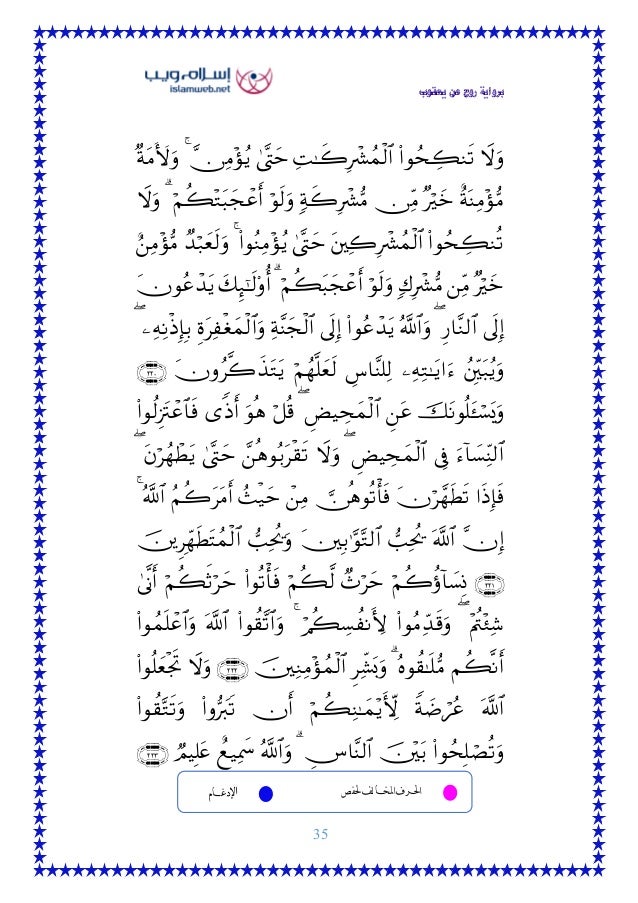 إسلام ويب
islamweb.net
برواية روح عن يعقوب
وَلَا تَنكِحُوا۟ ٱلْمُشْرِكَـٰتِ حَتَّىٰ يُؤْمِنَّ ۚ وَلَأَمَةٌ
مُّؤْمِنَةٌ خَيْرٌ مِّن مُّشْرِكَةٍ وَلَوْ أَعْجَبَتْكُمْ ۗ وَلَا
تُنكِحُوا۟ ٱلْمُشْرِكِينَ حَتَّىٰ يُؤْمِنُوا۟ ۚ وَلَعَبْدٌ مُّؤْمِنٌ
خَيْرٌ مِّن مُّشْرِكٍ وَلَوْ أَعْجَبَكُمْ ۗ أُو۟لَـٰٓئِكَ يَدْعُونَ
إِلَى ٱلنَّارِ ۖ وَٱللَّهُ يَدْعُوٓا۟ إِلَى ٱلْجَنَّةِ وَٱلْمَغْفِرَةِ بِإِذْنِهِۦ ۖ
وَيُبَيِّنُ ءَايَـٰتِهِۦ لِلنَّاسِ لَعَلَّهُمْ يَتَذَكَّرُونَ ٢٢٠
وَيَسْـَٔلُونَكَ عَنِ ٱلْمَحِيضِ ۖ قُلْ هُوَ أَذًى فَٱعْتَزِلُوا۟
ٱلنِّسَآءَ فِى ٱلْمَحِيضِ ۖ وَلَا تَقْرَبُوهُنَّ حَتَّىٰ يَطْهُرْنَ ۖ
فَإِذَا تَطَهَّرْنَ فَأْتُوهُنَّ مِنْ حَيْثُ أَمَرَكُمُ ٱللَّهُ ۚ
إِنَّ ٱللَّهَ يُحِبُّ ٱلتَّوَّٰبِينَ وَيُحِبُّ ٱلْمُتَطَهِّرِينَ
٢٢١ نِسَآؤُكُمْ حَرْثٌ لَّكُمْ فَأْتُوا۟ حَرْثَكُمْ أَنَّىٰ
شِئْتُمْ ۖ وَقَدِّمُوا۟ لِأَنفُسِكُمْ ۚ وَٱتَّقُوا۟ ٱللَّهَ وَٱعْلَمُوٓا۟
أَنَّكُم مُّلَـٰقُوهُ ۗ وَبَشِّرِ ٱلْمُؤْمِنِينَ ٢٢٢ وَلَا تَجْعَلُوا۟
ٱللَّهَ عُرْضَةً لِّأَيْمَـٰنِكُمْ أَن تَبَرُّوا۟ وَتَتَّقُوا۟
وَتُصْلِحُوا۟ بَيْنَ ٱلنَّاسِ ۗ وَٱللَّهُ سَمِيعٌ عَلِيمٌ ٢٢٣
الحرف المخالف لحفص الإدغام
35